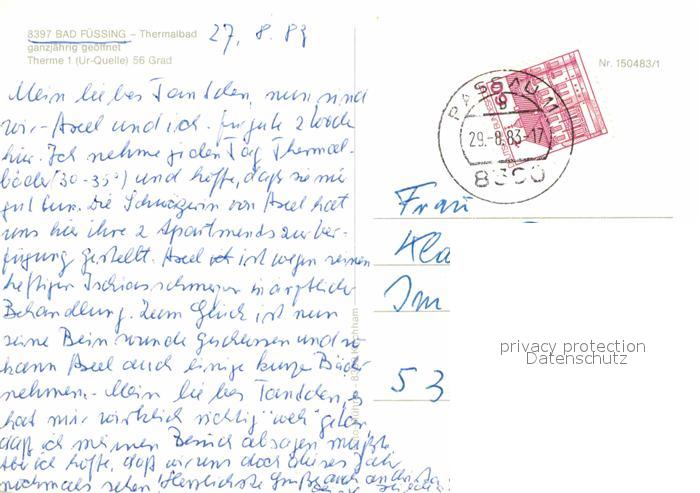 8397 BAD FÜSSING – Thermalbad
ganzjährig geöffnet
Therme 1 (Ur-Quelle) 56 Grad
27. 8. 83
Nr. 150483/1
PASSAU
29.-8.83-17
8390
60
Mein liebes Tantchen, nun sind
wir - Axel und ich für gute 2 Woche
hier. Ich nehme jeden Tag Thermal-
bäder (30-35°) und hoffe, daß sie mir
gut tun. Die Schwägerin von Axel hat
uns hier ihre 2 Apartments zur Ver-
fügung gestellt. Axel ist wegen seinen
heftigen Ischias schmerzen in ärztlicher
Behandlung. Zum Glück ist nun
seine Bein wunde geschlossen und so
kann Axel auch einige kurze Bäder
nehmen. Mein liebes Tantchen, es
hat mir wirklich richtig "weh" getan,
daß ich meinen Besuch absagen mußte
Aber ich hoffe, daß wir uns doch dieses Jahr
nochmals sehen Herzlichste Grüße auch an
Frau
Kla
Im
53
privacy protection
Datenschutz